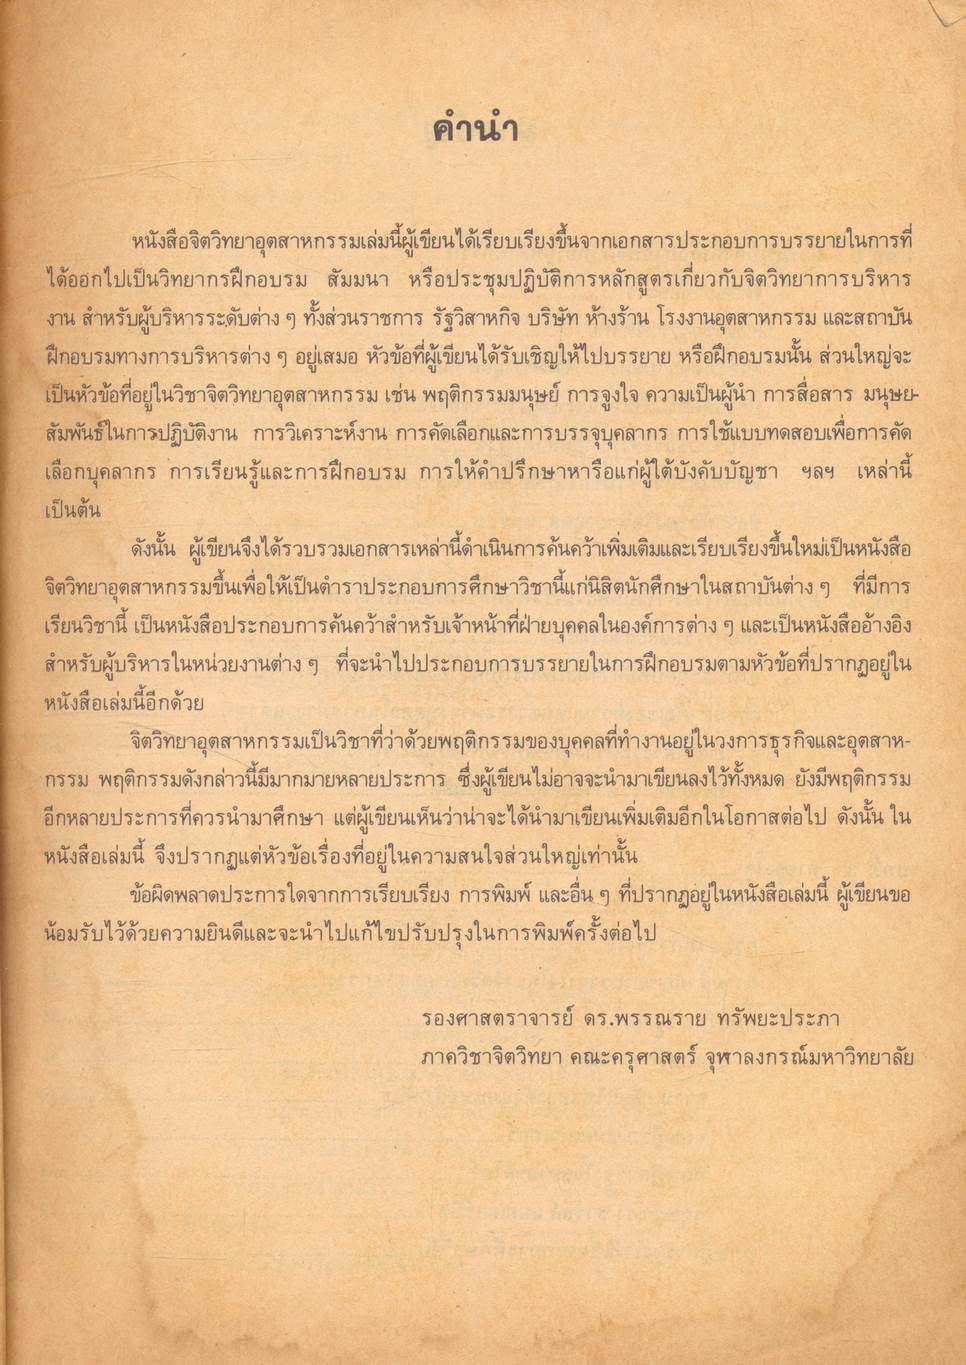 คำนำ
หนังสือจิตวิทยาอุตสาหกรรมเล่มนี้ผู้เขียนได้เรียบเรียงขึ้นจากเอกสารประกอบการบรรยายในการที่
ได้ออกไปเป็นวิทยากรฝึกอบรม สัมมนา หรือประชุมปฏิบัติการหลักสูตรเกี่ยวกับจิตวิทยาการบริหาร
งาน สำหรับผู้บริหารระดับต่าง ๆ ทั้งส่วนราชการ รัฐวิสาหกิจ บริษัท ห้างร้าน โรงงานอุตสาหกรรม และสถาบัน
ฝึกอบรมทางการบริหารต่าง ๆ อยู่เสมอ หัวข้อที่ผู้เขียนได้รับเชิญให้ไปบรรยาย หรือฝึกอบรมนั้น ส่วนใหญ่จะ
เป็นหัวข้อที่อยู่ในวิชาจิตวิทยาอุตสาหกรรม เช่น พฤติกรรมมนุษย์ การจูงใจ ความเป็นผู้นำ การสื่อสาร มนุษย-
สัมพันธ์ในการปฏิบัติงาน การวิเคราะห์งาน การคัดเลือกและการบรรจุบุคลากร การใช้แบบทดสอบเพื่อการคัด
เลือกบุคลากร การเรียนรู้และการฝึกอบรม การให้คำปรึกษาหารือแก่ผู้ใต้บังคับบัญชา ฯลฯ เหล่านี้
เป็นต้น
ดังนั้น ผู้เขียนจึงได้รวบรวมเอกสารเหล่านี้ดำเนินการค้นคว้าเพิ่มเติมและเรียบเรียงขึ้นใหม่เป็นหนังสือ
จิตวิทยาอุตสาหกรรมขึ้นเพื่อให้เป็นตำราประกอบการศึกษาวิชานี้แก่นิสิตนักศึกษาในสถาบันต่าง ๆ ที่มีการ
เรียนวิชานี้ เป็นหนังสือประกอบการค้นคว้าสำหรับเจ้าหน้าที่ฝ่ายบุคคลในองค์การต่าง ๆ และเป็นหนังสืออ้างอิง
สำหรับผู้บริหารในหน่วยงานต่าง ๆ ที่จะนำไปประกอบการบรรยายในการฝึกอบรมตามหัวข้อที่ปรากฏอยู่ใน
หนังสือเล่มนี้อีกด้วย
จิตวิทยาอุตสาหกรรมเป็นวิชาที่ว่าด้วยพฤติกรรมของบุคคลที่ทำงานอยู่ในวงการธุรกิจและอุตสาห-
กรรม พฤติกรรมดังกล่าวนี้มีมากมายหลายประการ ซึ่งผู้เขียนไม่อาจจะนำมาเขียนลงไว้ทั้งหมด ยังมีพฤติกรรม
อีกหลายประการที่ควรนำมาศึกษา แต่ผู้เขียนเห็นว่าน่าจะได้นำมาเขียนเพิ่มเติมอีกในโอกาสต่อไป ดังนั้น ใน
หนังสือเล่มนี้ จึงปรากฏแต่หัวข้อเรื่องที่อยู่ในความสนใจส่วนใหญ่เท่านั้น
ข้อผิดพลาดประการใดจากการเรียบเรียง การพิมพ์ และอื่น ๆ ที่ปรากฏอยู่ในหนังสือเล่มนี้ ผู้เขียนขอ
น้อมรับไว้ด้วยความยินดีและจะนำไปแก้ไขปรับปรุงในการพิมพ์ครั้งต่อไป
รองศาสตราจารย์ ดร.พรรณราย ทรัพยะประภา
ภาควิชาจิตวิทยา คณะครุศาสตร์ จุฬาลงกรณ์มหาวิทยาลัย